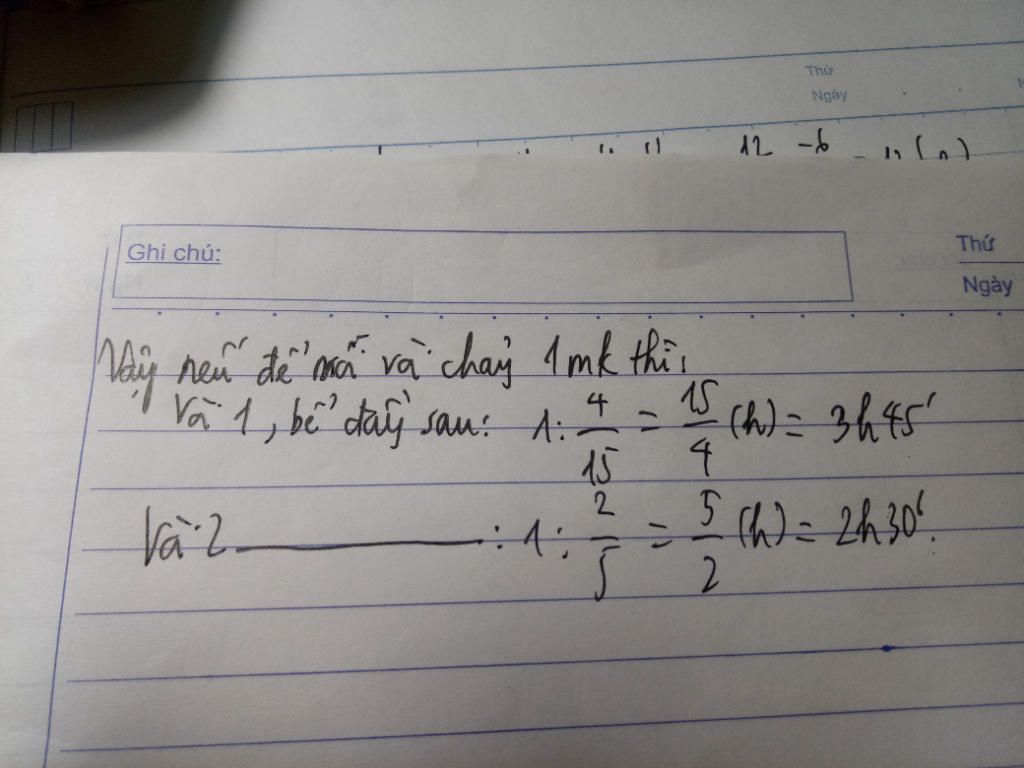 Thứ
Ngày
12 -6
Ghi chú:
Thứ
Ngày
Vậy nếu để mỗi vòi chảy 1 mk thì:
Vòi 1, bể đầy sau: 1: 4/15 = 15/4 (h) = 3h45'
Vòi 2 ————— : 1: 2/5 = 5/2 (h) = 2h30'.